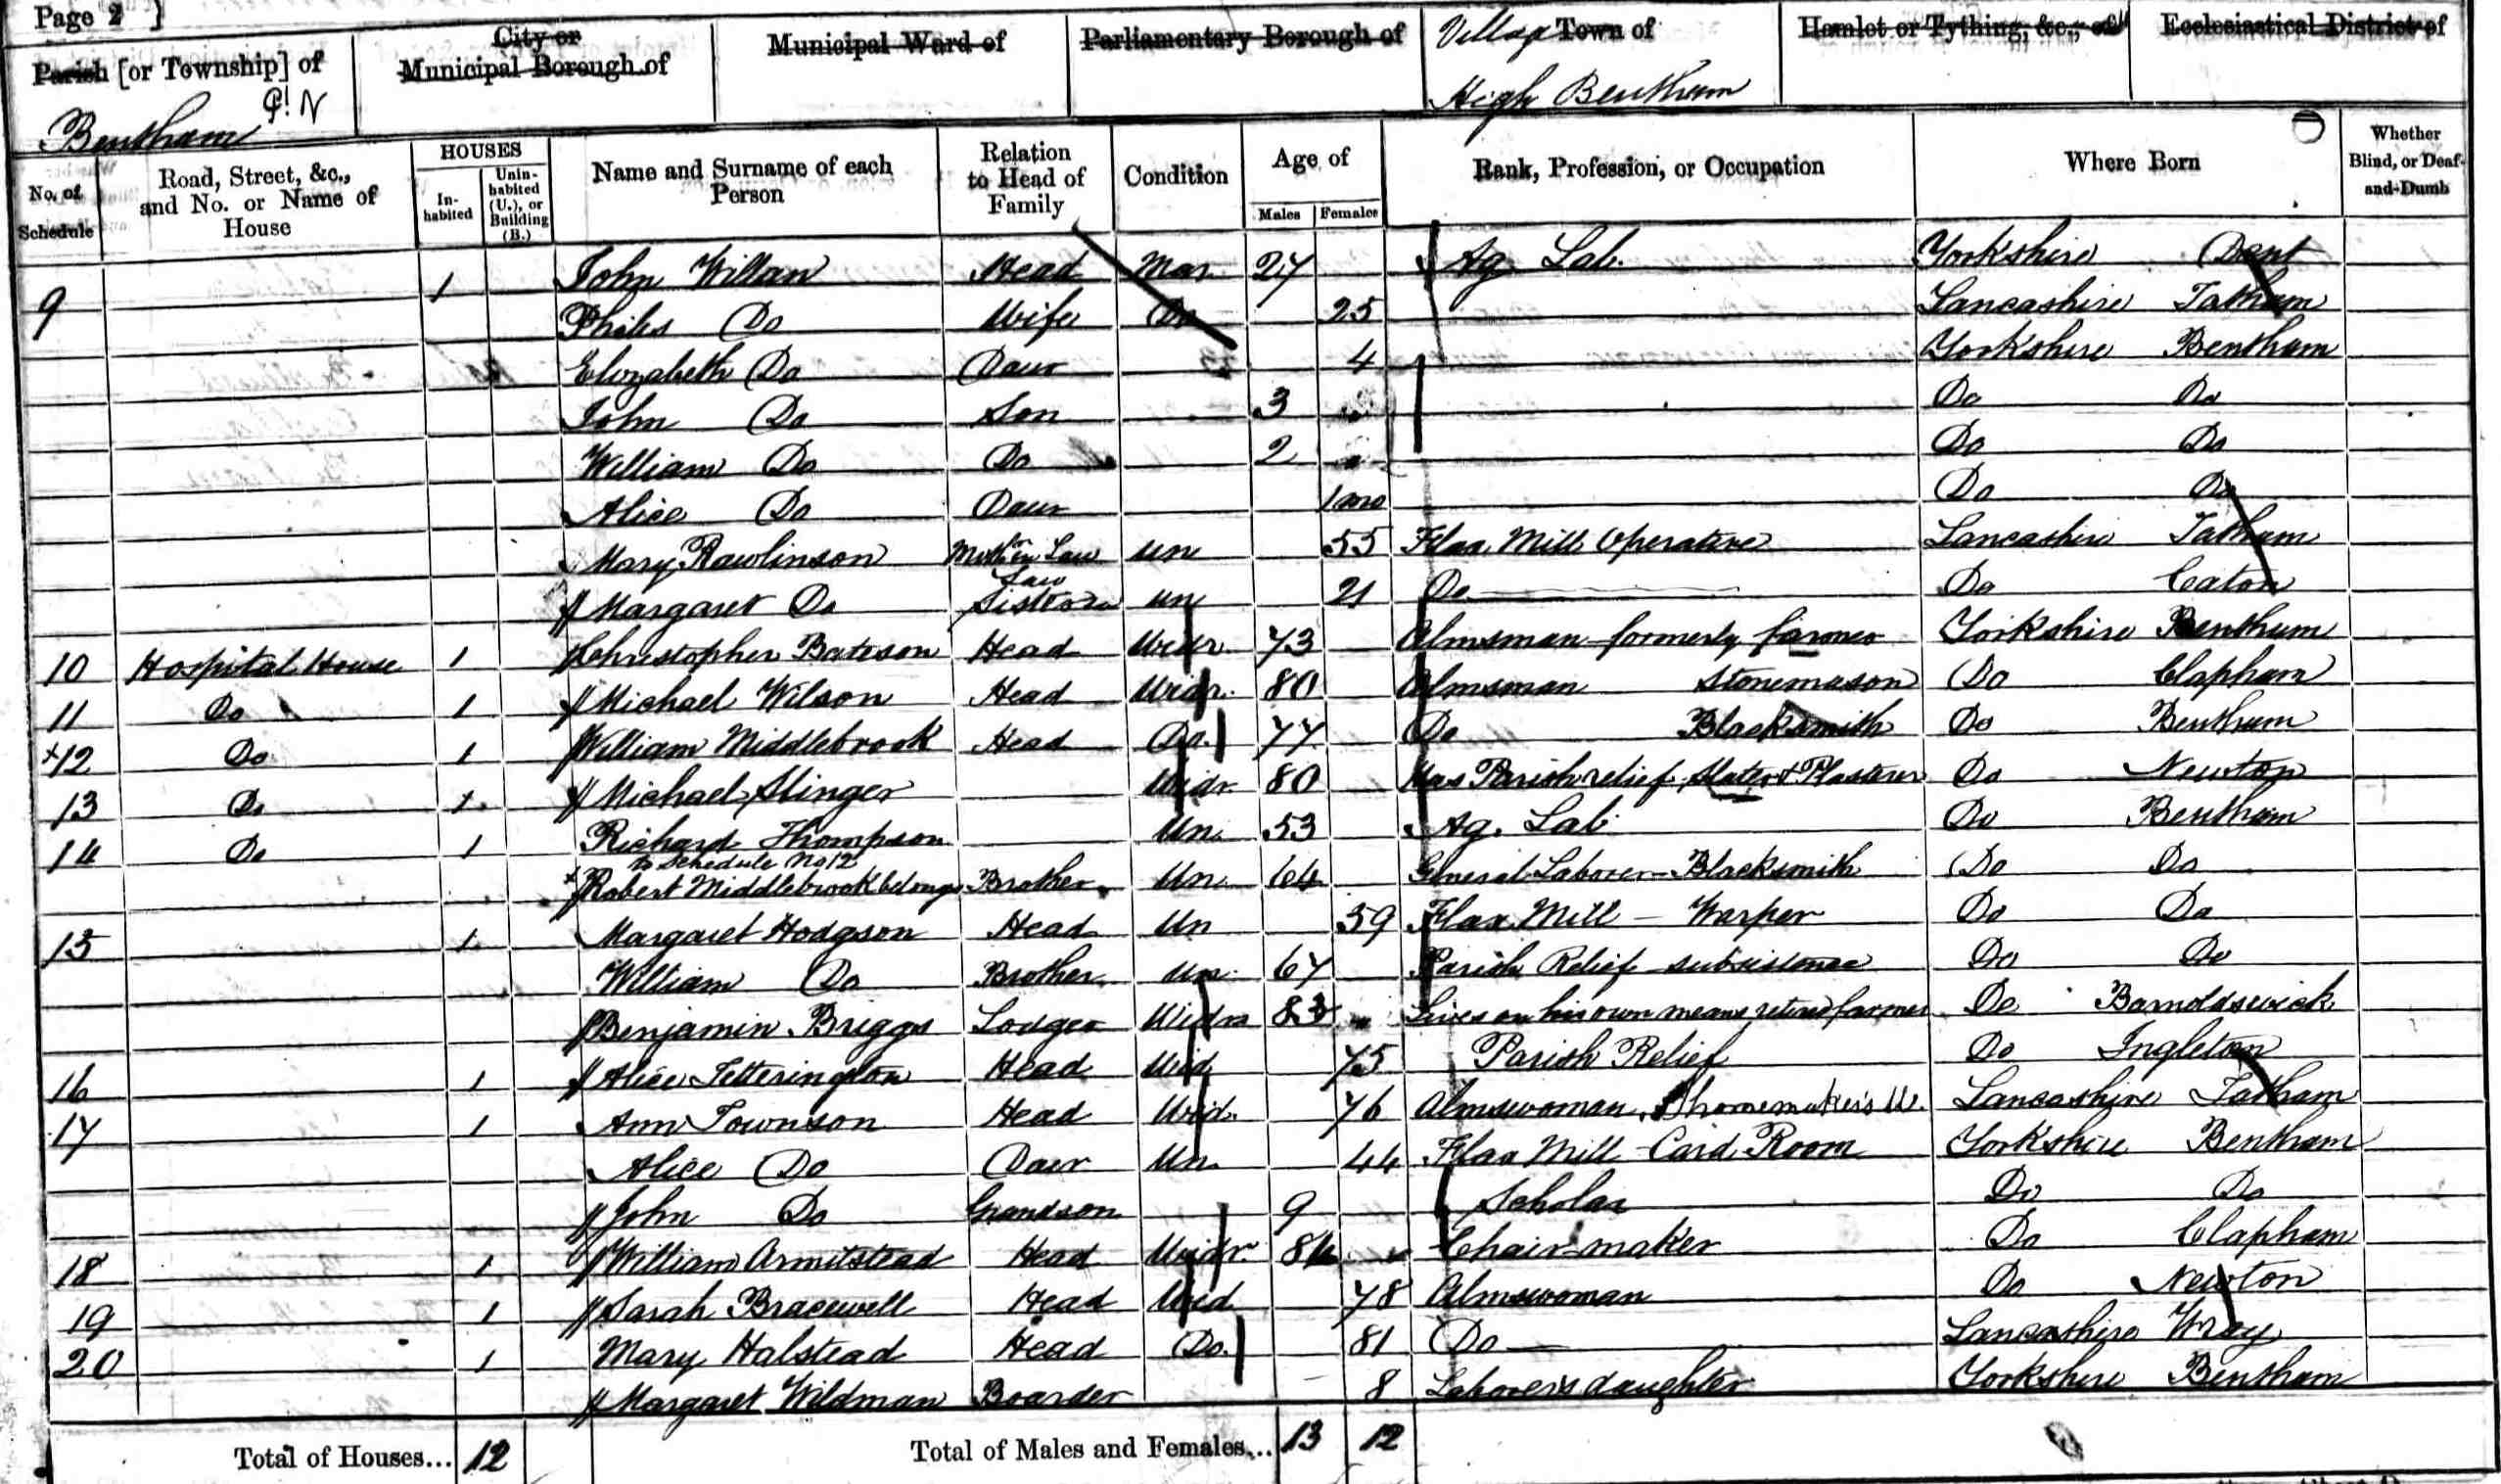 Page 2 ]
Parish [or Township] of
Bentham
City or Municipal Borough of
Municipal Ward of
Parliamentary Borough of
Village Town of
High Bentham
Hamlet or Tything, &c., of
Ecclesiastical District of
No. of Schedule
Road, Street, &c., and No. or Name of House
HOUSES
In-habited
Unin-habited (U.), or Building (B.)
Name and Surname of each Person
Relation to Head of Family
Condition
Age of
Males
Females
Rank, Profession, or Occupation
Where Born
Whether Blind, or Deaf-and-Dumb
9 1 John Willan Head Mar 27 Ag. Lab. Yorkshire Dent
Philis Do Wife Do 25 Lancashire Tatham
Elizabeth Do Daur 4 Yorkshire Bentham
John Do Son 3 Do Do
William Do Do 2 Do Do
Alice Do Daur 1mo Do Do
Mary Rawlinson Mother in Law Un 55 Flax Mill Operative Lancashire Tatham
Margaret Do Sister in Law Un 21 Do Do Caton
10 Hospital House 1 Christopher Bateson Head Widr 73 Almsman formerly farmer Yorkshire Bentham
11 Do 1 Michael Wilson Head Widr. 80 Almsman Stonemason Do Clapham
x12 Do 1 William Middlebrook Head Do. 77 Do Blacksmith Do Bentham
13 Do 1 Michael Slinger Widr 80 Has Parish relief, Slater & Plasterer Do Newton
14 Do 1 Richard Thompson Un. 53 Ag. Lab. Do Bentham
to Schedule No 12
x Robert Middlebrook belongs Brother Un. 64 General Laborer - Blacksmith Do Do
15 1 Margaret Hodgson Head Un 59 Flax Mill - Warper Do Do
William Do Brother Un. 67 Parish Relief subsistence Do Do
Benjamin Briggs Lodger Widr 83 Lives on his own means retired farmer Do Barnoldswick
16 1 Alice Tetterington Head Wid 75 Parish Relief Do Ingleton
17 1 Ann Townson Head Wid. 76 Almswoman, Shoemaker's W. Lancashire Tatham
Alice Do Daur Un. 44 Flax Mill - Card Room Yorkshire Bentham
John Do Grandson 9 Scholar Do Do
18 1 William Armitstead Head Widr. 84 Chair-maker Do Clapham
19 1 Sarah Bracewell Head Wid 78 Almswoman Do Newton
20 1 Mary Halstead Head Do. 81 Do Lancashire Wray
Margaret Wildman Boarder 8 Laborer's daughter Yorkshire Bentham
Total of Houses... 12
Total of Males and Females... 13 12